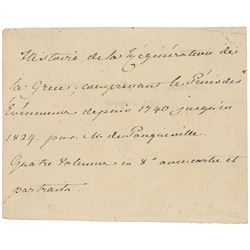 Histoire de la Régénération de
la Grèce, comprenant le Précis des
Évènemens depuis 1740 jusqu'en
1824. par M. de Pouqueville.
Quatre Volumes in 8° avec carte et
portraits